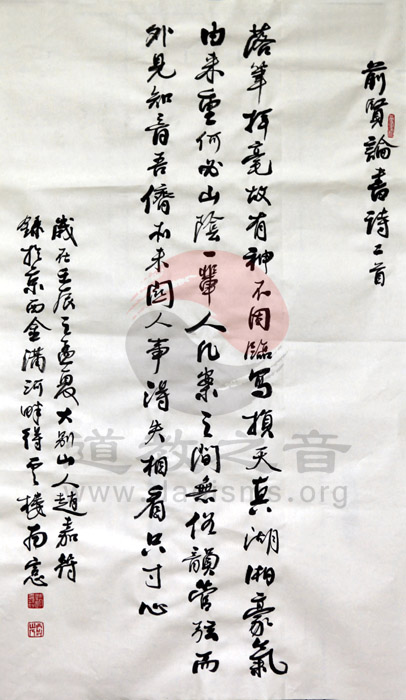 前賢論書詩二首
落筆揮毫故有神不因臨寫損天真湖湘豪氣
由来重何必山陰一輩人几案之間無俗韻管弦而
外見知音吾儕初未關人事得失相看只寸心
歲在壬辰之夏大别山人趙嘉符
錄於京西金溝河畔得雲樓南窓
道教之音
www.daoisms.org